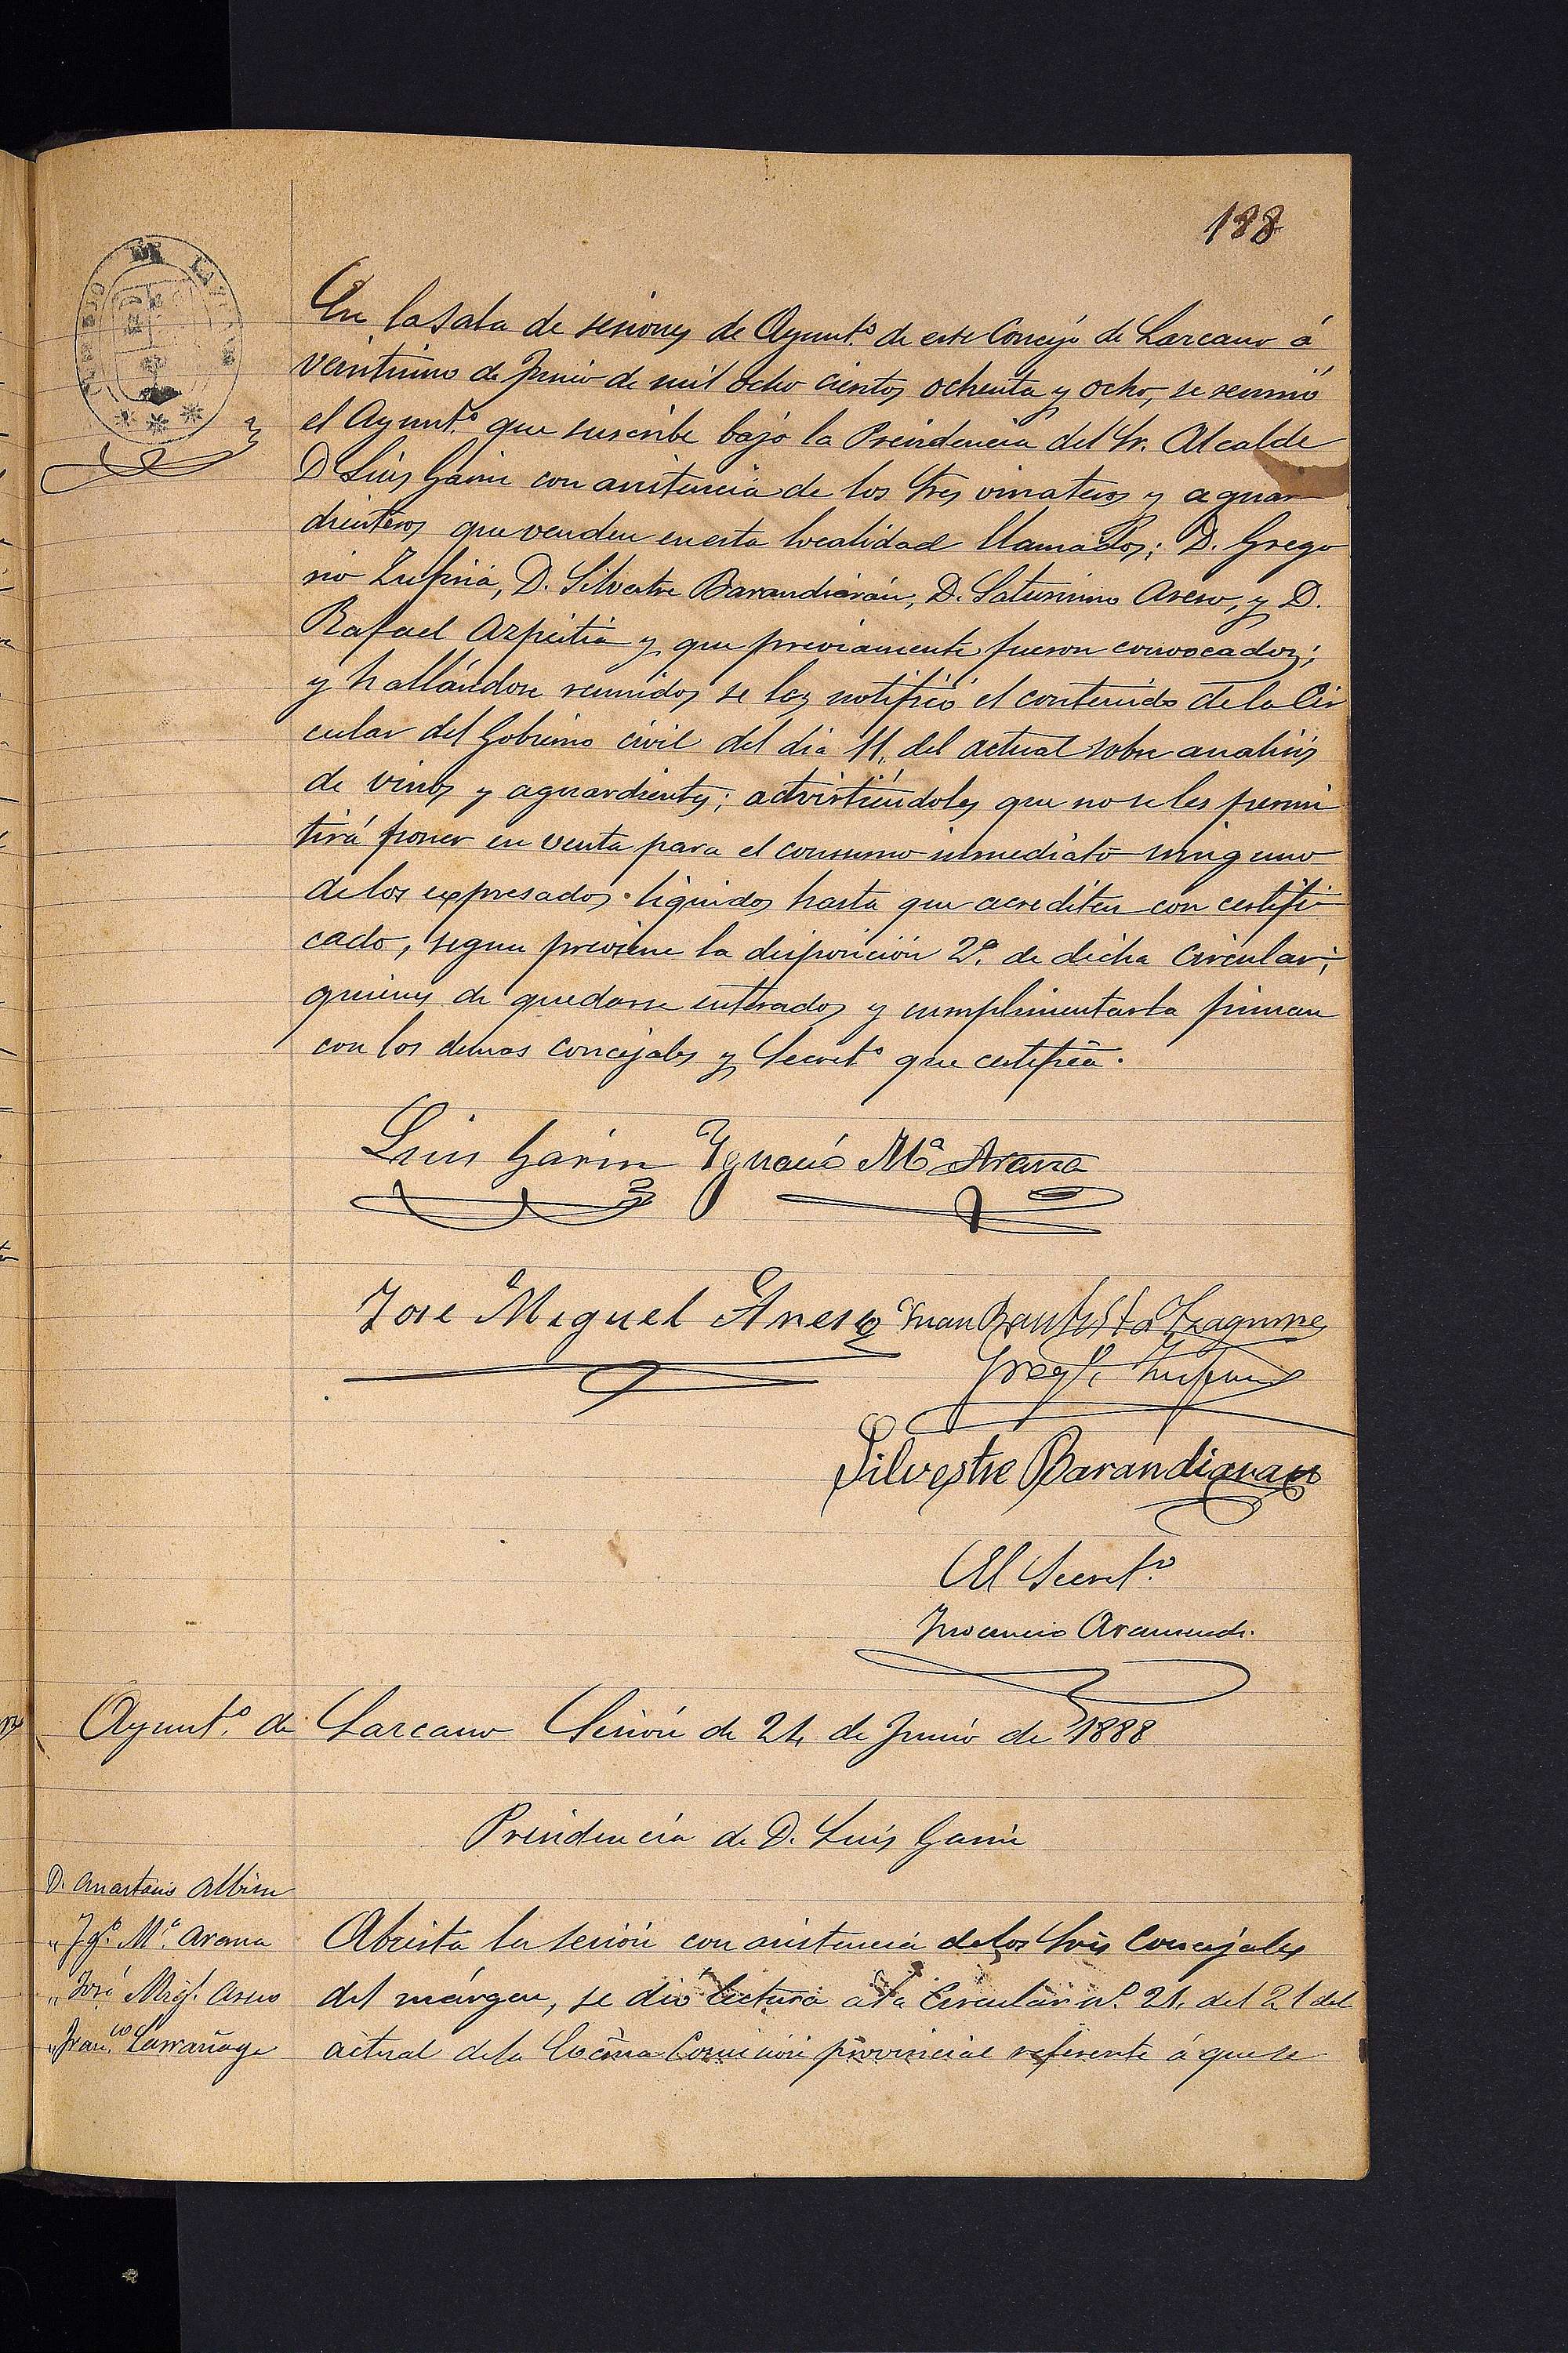 188
En la sala de sesiones de Ayunt.º de este Concejo de Lazcano á
veintiuno de Junio de mil ocho cientos ochenta y ocho, se reunió
el Ayunt.º que suscribe bajo la Presidencia del Sr. Alcalde
D Luis Garin con asistencia de los Sres vinateros y aguar
dienteros que venden en esta localidad llamados; D. Grego
rio Zufiria, D. Silvestre Barandiarán, D. Saturnino Aseso, y D.
Rafael Azpeitia y que previamente fueron convocados;
y hallándose reunidos se les notificó el contenido de la Cir
cular del Gobierno civil del dia 11, del actual sobre analisis
de vinos y aguardientes; advirtiéndoles que no se les permi
tirá poner en venta para el consumo inmediato ninguno
de los expresados liquidos hasta que acrediten con certifi
cado, segun previene la disposición 2ª. de dicha Circular;
quienes de quedarse enterados y cumplimentarla firman
con los demas concejales y Secret.º que certifica.
Luis Garin Ygnacio Mª Arana
José Miguel Aseso Juan Bautista Yzaguirre
Greg.º Zufiria
Silvestre Barandiaran
El Secret.º
Inocencio Aramendi.
Ayunt.º de Lazcano Sesión de 24, de Junio de 1888
Presidencia de D. Luis Garin
D. Anastasio Albisu
" Ygº. Mª. Arana
" José Migl. Aseso
" Franco. Larrañaga
Abierta la sesión con asistencia de los Sres Concejales
del márgen, se dió lectura a la Circular nº. 21, del 21 del
actual de la Excma Comisión provincial referente á que se